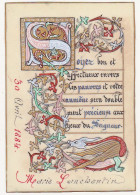 Soyez bon et
affectueux envers
les pauvres et votre
aumône sera double
ment précieuse aux
yeux du Seigneur
30 Avril 1884
Marie